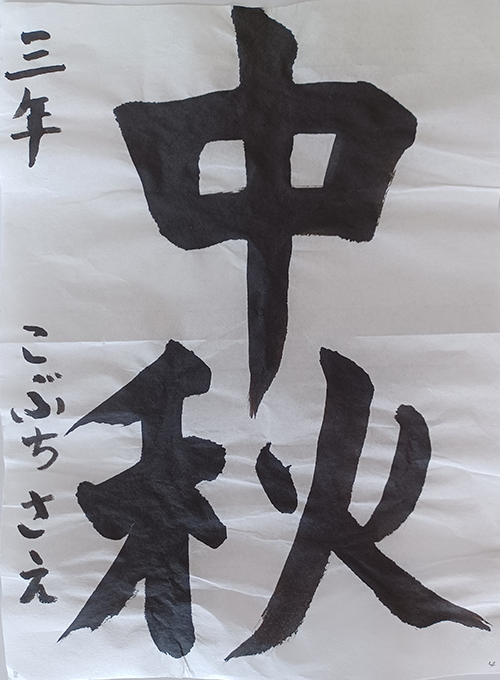 中秋
三年 こぶち さえ